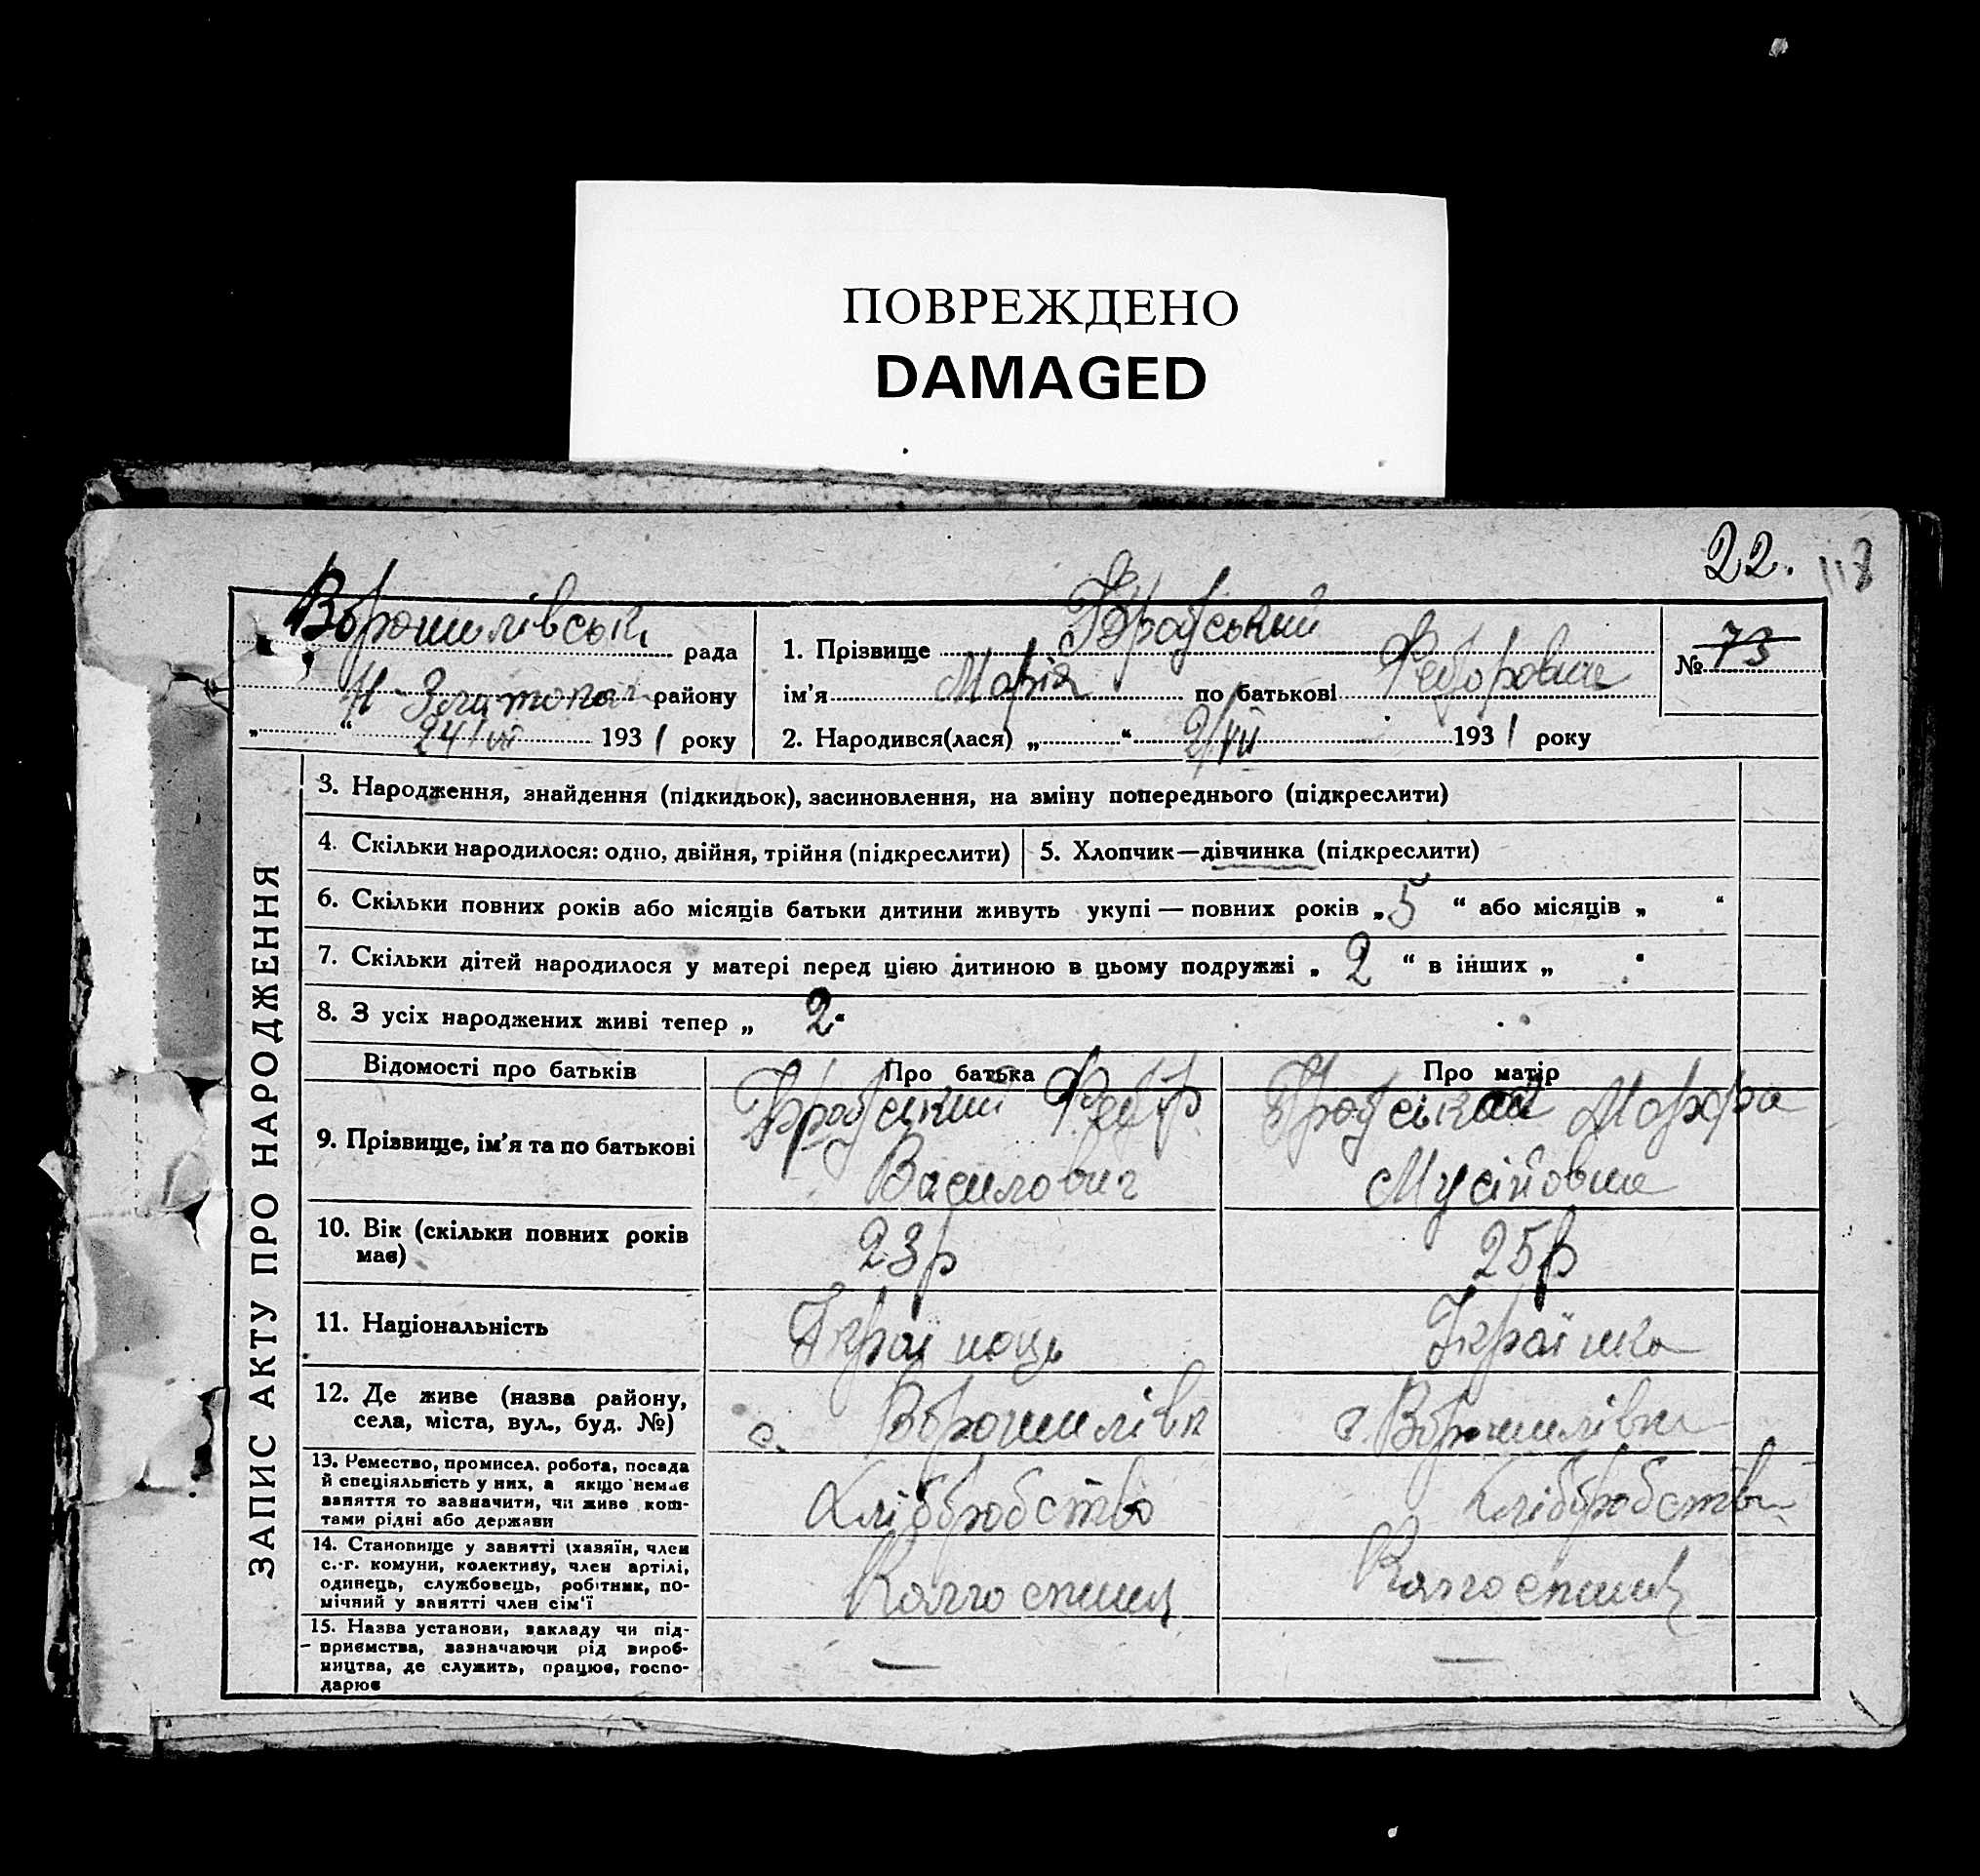 ПОВРЕЖДЕНО
DAMAGED
22.
Ворошилівськ. рада
Н-Златопол району
„ “ 24/VII 1931 року
1. Прізвище
ім’я Марія по батькові Федоровна
2. Народився(лася) „ “ 2/VII 1931 року
№ 73
ЗАПИС АКТУ ПРО НАРОДЖЕННЯ
3. Народження, знайдення (підкидьок), засиновлення, на зміну попереднього (підкреслити)
4. Скільки народилося: одно, двійня, трійня (підкреслити)
5. Хлопчик—дівчинка (підкреслити)
6. Скільки повних років або місяців батьки дитини живуть укупі — повних років „ 5 “ або місяців „ “
7. Скільки дітей народилося у матері перед цією дитиною в цьому подружжі „ 2 “ в інших „ “
8. З усіх народжених живі тепер „ 2 “
Відомості про батьків
Про батька
Про матір
9. Прізвище, ім’я та по батькові
Федір
Василович
Марфа
Мусійовна
10. Вік (скільки повних років
має)
23р
25р
11. Національність
Українець
Українка
12. Де живе (назва району,
села, міста, вул., буд. №)
с. Ворошилівк
с. Ворошилівка
13. Ремество, промисел, робота, посада
й спеціяльність у них, а якщо немає
заняття то зазначити, чи живе кош-
тами рідні або держави
Хліборобство
Хліборобство
14. Становище у занятті (хазяїн, член
с.-г. комуни, колективу, член артілі,
одинець, службовець, робітник, по-
мічний у занятті член сім’ї
Колгоспниц
Колгоспниц
15. Назва установи, закладу чи під-
приємства, зазначаючи рід вироб-
ництва, де служить, працює, госпо-
дарює
—
—